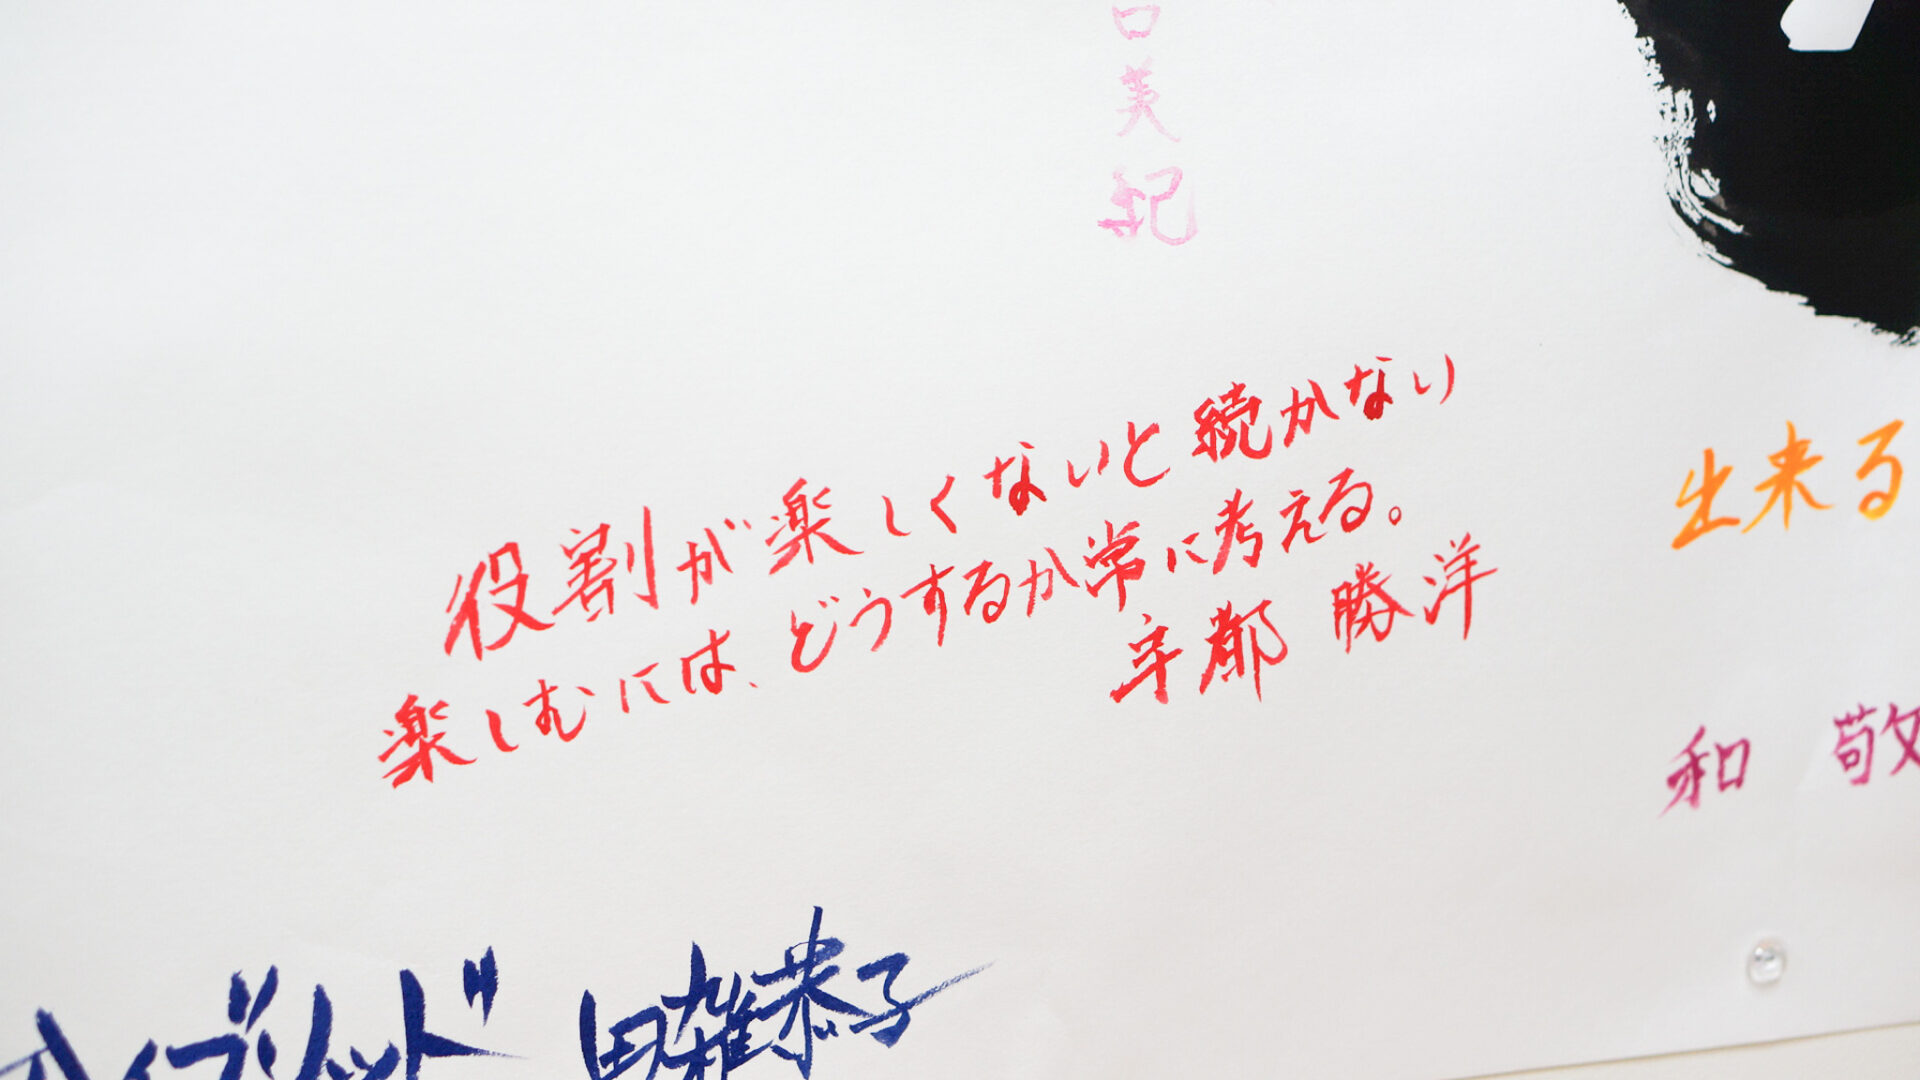 口美紀
役割が楽しくないと続かない
楽しむには、どうするか常に考える。
宇都 勝洋
出来る
和 敬
ハイブリッド 田雑恭子